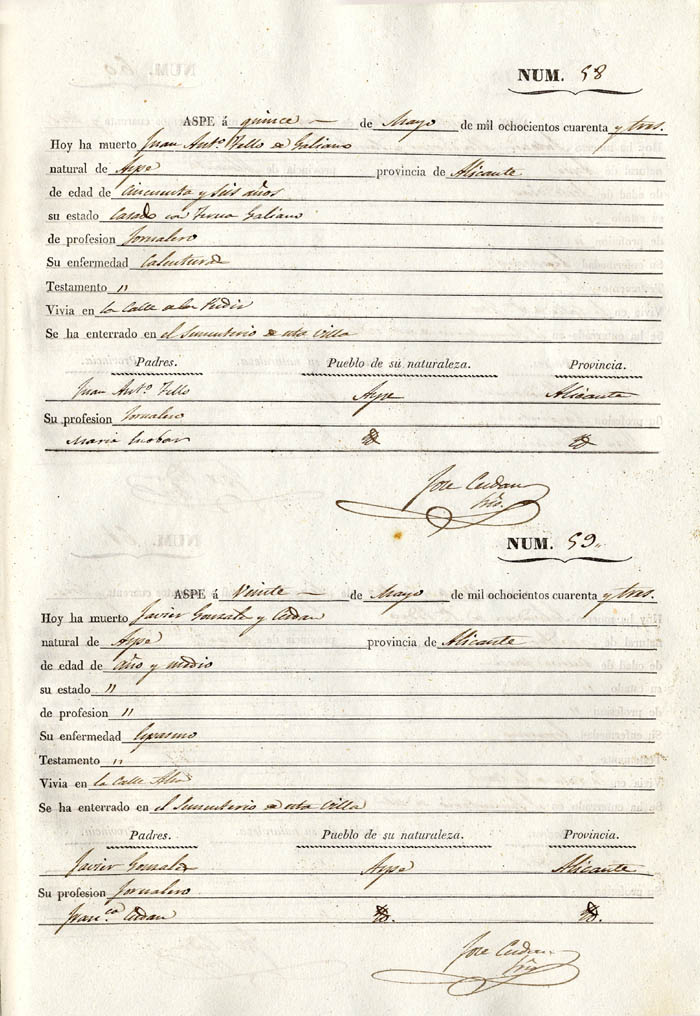 NUM. 58
ASPE á quince de Mayo de mil ochocientos cuarenta y tres.
Hoy ha muerto Juan Antº. Tello de Galiano
natural de Aspe provincia de Alicante
de edad de cincuenta y seis años
su estado Casado con Teresa Galiano
de profesion Jornalero
Su enfermedad Calentura
Testamento "
Vivia en la Calle
Se ha enterrado en el Sementerio de esta Villa
Padres. Pueblo de su naturaleza. Provincia.
Juan Antº. Tello Aspe Alicante
Su profesion Jornalero
Maria Escobar id id
Jose Cerdan
Srio.
NUM. 59.
ASPE á Veinte de Mayo de mil ochocientos cuarenta y tres.
Hoy ha muerto Javier Gonzalez y Cerdan
natural de Aspe provincia de Alicante
de edad de año y medio
su estado "
de profesion "
Su enfermedad Espasmo
Testamento "
Vivia en la Calle Alta
Se ha enterrado en el Sementerio de esta Villa
Padres. Pueblo de su naturaleza. Provincia.
Javier Gonzalez Aspe Alicante
Su profesion Jornalero
Franca. Cerdan id. id.
Jose Cerdan
Srio